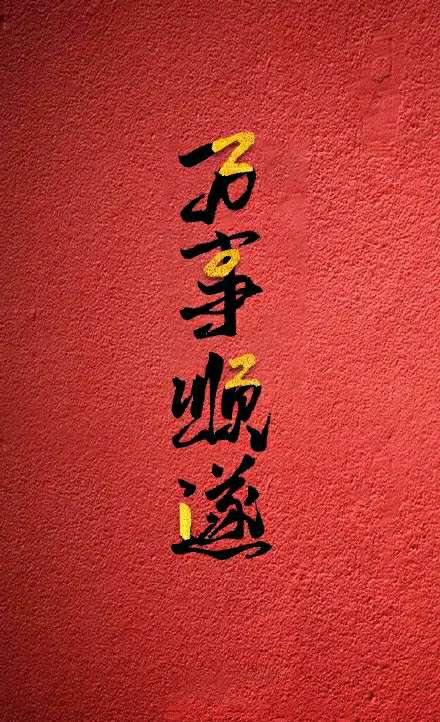 万事顺遂